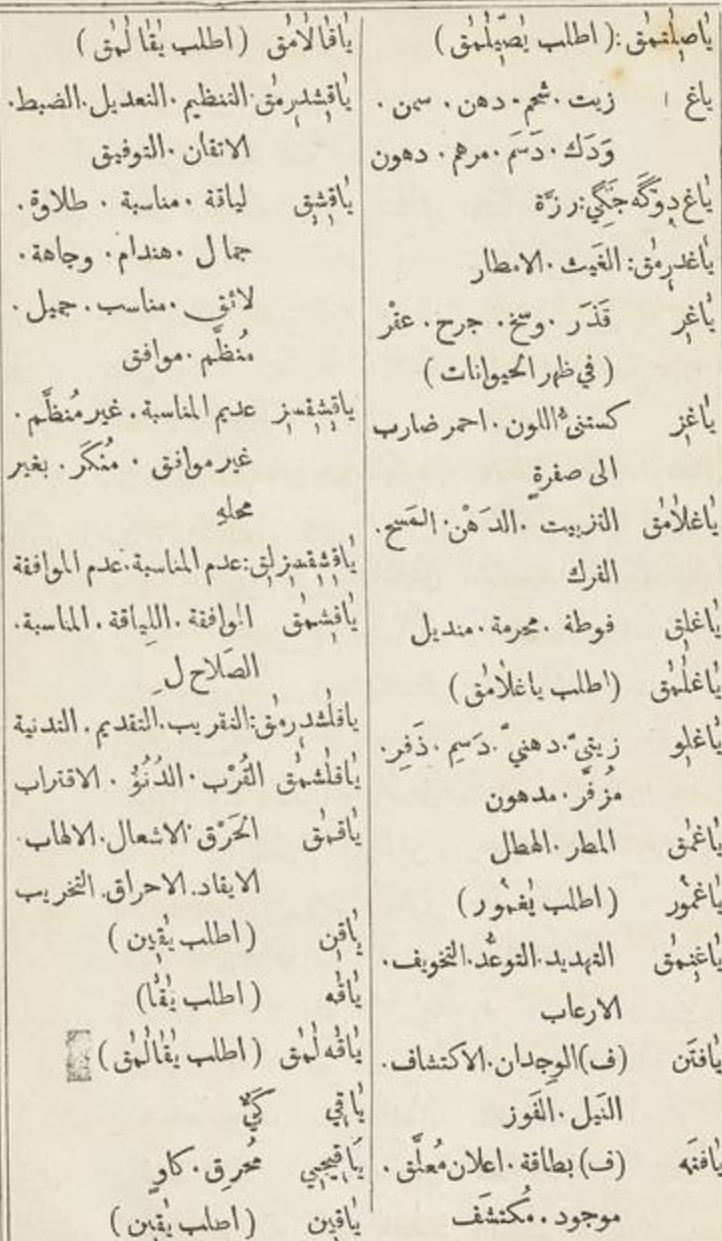 ياصلتمق :( اطلب يصيلمق )
ياغ زيت . شحم . دهن . سمن .
وَدَك . دَسَم . مرهم . دهون
ياغ دوكَه جَكي : رزَّة
ياغدرمق : الغَيث . الامطار
ياغر قَذَر . وسخ . جرح . عقْر
( في ظهر الحيوانات )
ياغز كستنيّ اللون . احمر ضارب
الى صفرةٍ
ياغلامق التزييت . الدَهْن . المَسح .
الفرك
ياغلق فوطة . محرمة . منديل
ياغلُمق (اطلب ياغلامق )
ياغلو زيتيّ . دهنيّ . دَسِم . ذَفِر .
مُزفَّر . مدهون
ياغمق المطر . الهطال
ياغمور ( اطلب يغمور )
ياغنمق التهديد . التوعُّد . التخويف .
الارعاب
يافتَن (ف) الوِجدان . الاكتشاف .
النَيل . الفَوز
يافتَه (ف) بطاقة . اعلان مُعلَّق .
موجود . مُكتشَف
ياقالامق ( اطلب يقالمق )
ياقشدرمق : التنظيم . التعديل . الضبط .
الاتقان . التوفيق
ياقشق لياقة . مناسبة . طلاوة .
جمال . هندام . وجاهة .
لائق . مناسب . جميل .
مُنظَّم . موافق
ياقشقسز عديم المناسبة . غير مُنظَّم .
غير موافق . مُنكَر . بغير
محلهِ
ياقشقسزلق : عدم المناسبة . عدم الموافقة
ياقشمق الموافقة . اللِياقة . المناسبة .
الصَلاح لِ
ياقلشدرمق : التقريب . التقديم . التدنية
ياقلشمق القُرْب . الدُنُوّ . الاقتراب
ياقمق الحَرْق . الاشعال . الالهاب .
الايقاد . الاحراق . التخريب
ياقن ( اطلب يقين )
ياقه ( اطلب يقا)
ياقه لمق ( اطلب يقالمق )
ياقي كَيّ
ياقيجي مُحرِق . كاوٍ
ياقين ( اطلب يقين )